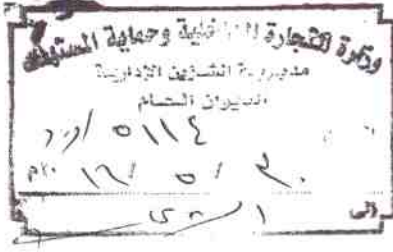 وزارة التجارة الداخلية وحماية المستهلك
مديرية الشؤون الإدارية
الديوان العام
٥١١٤ / و د
٣٠ / ٥ / ١٦ ٢٠م
الى